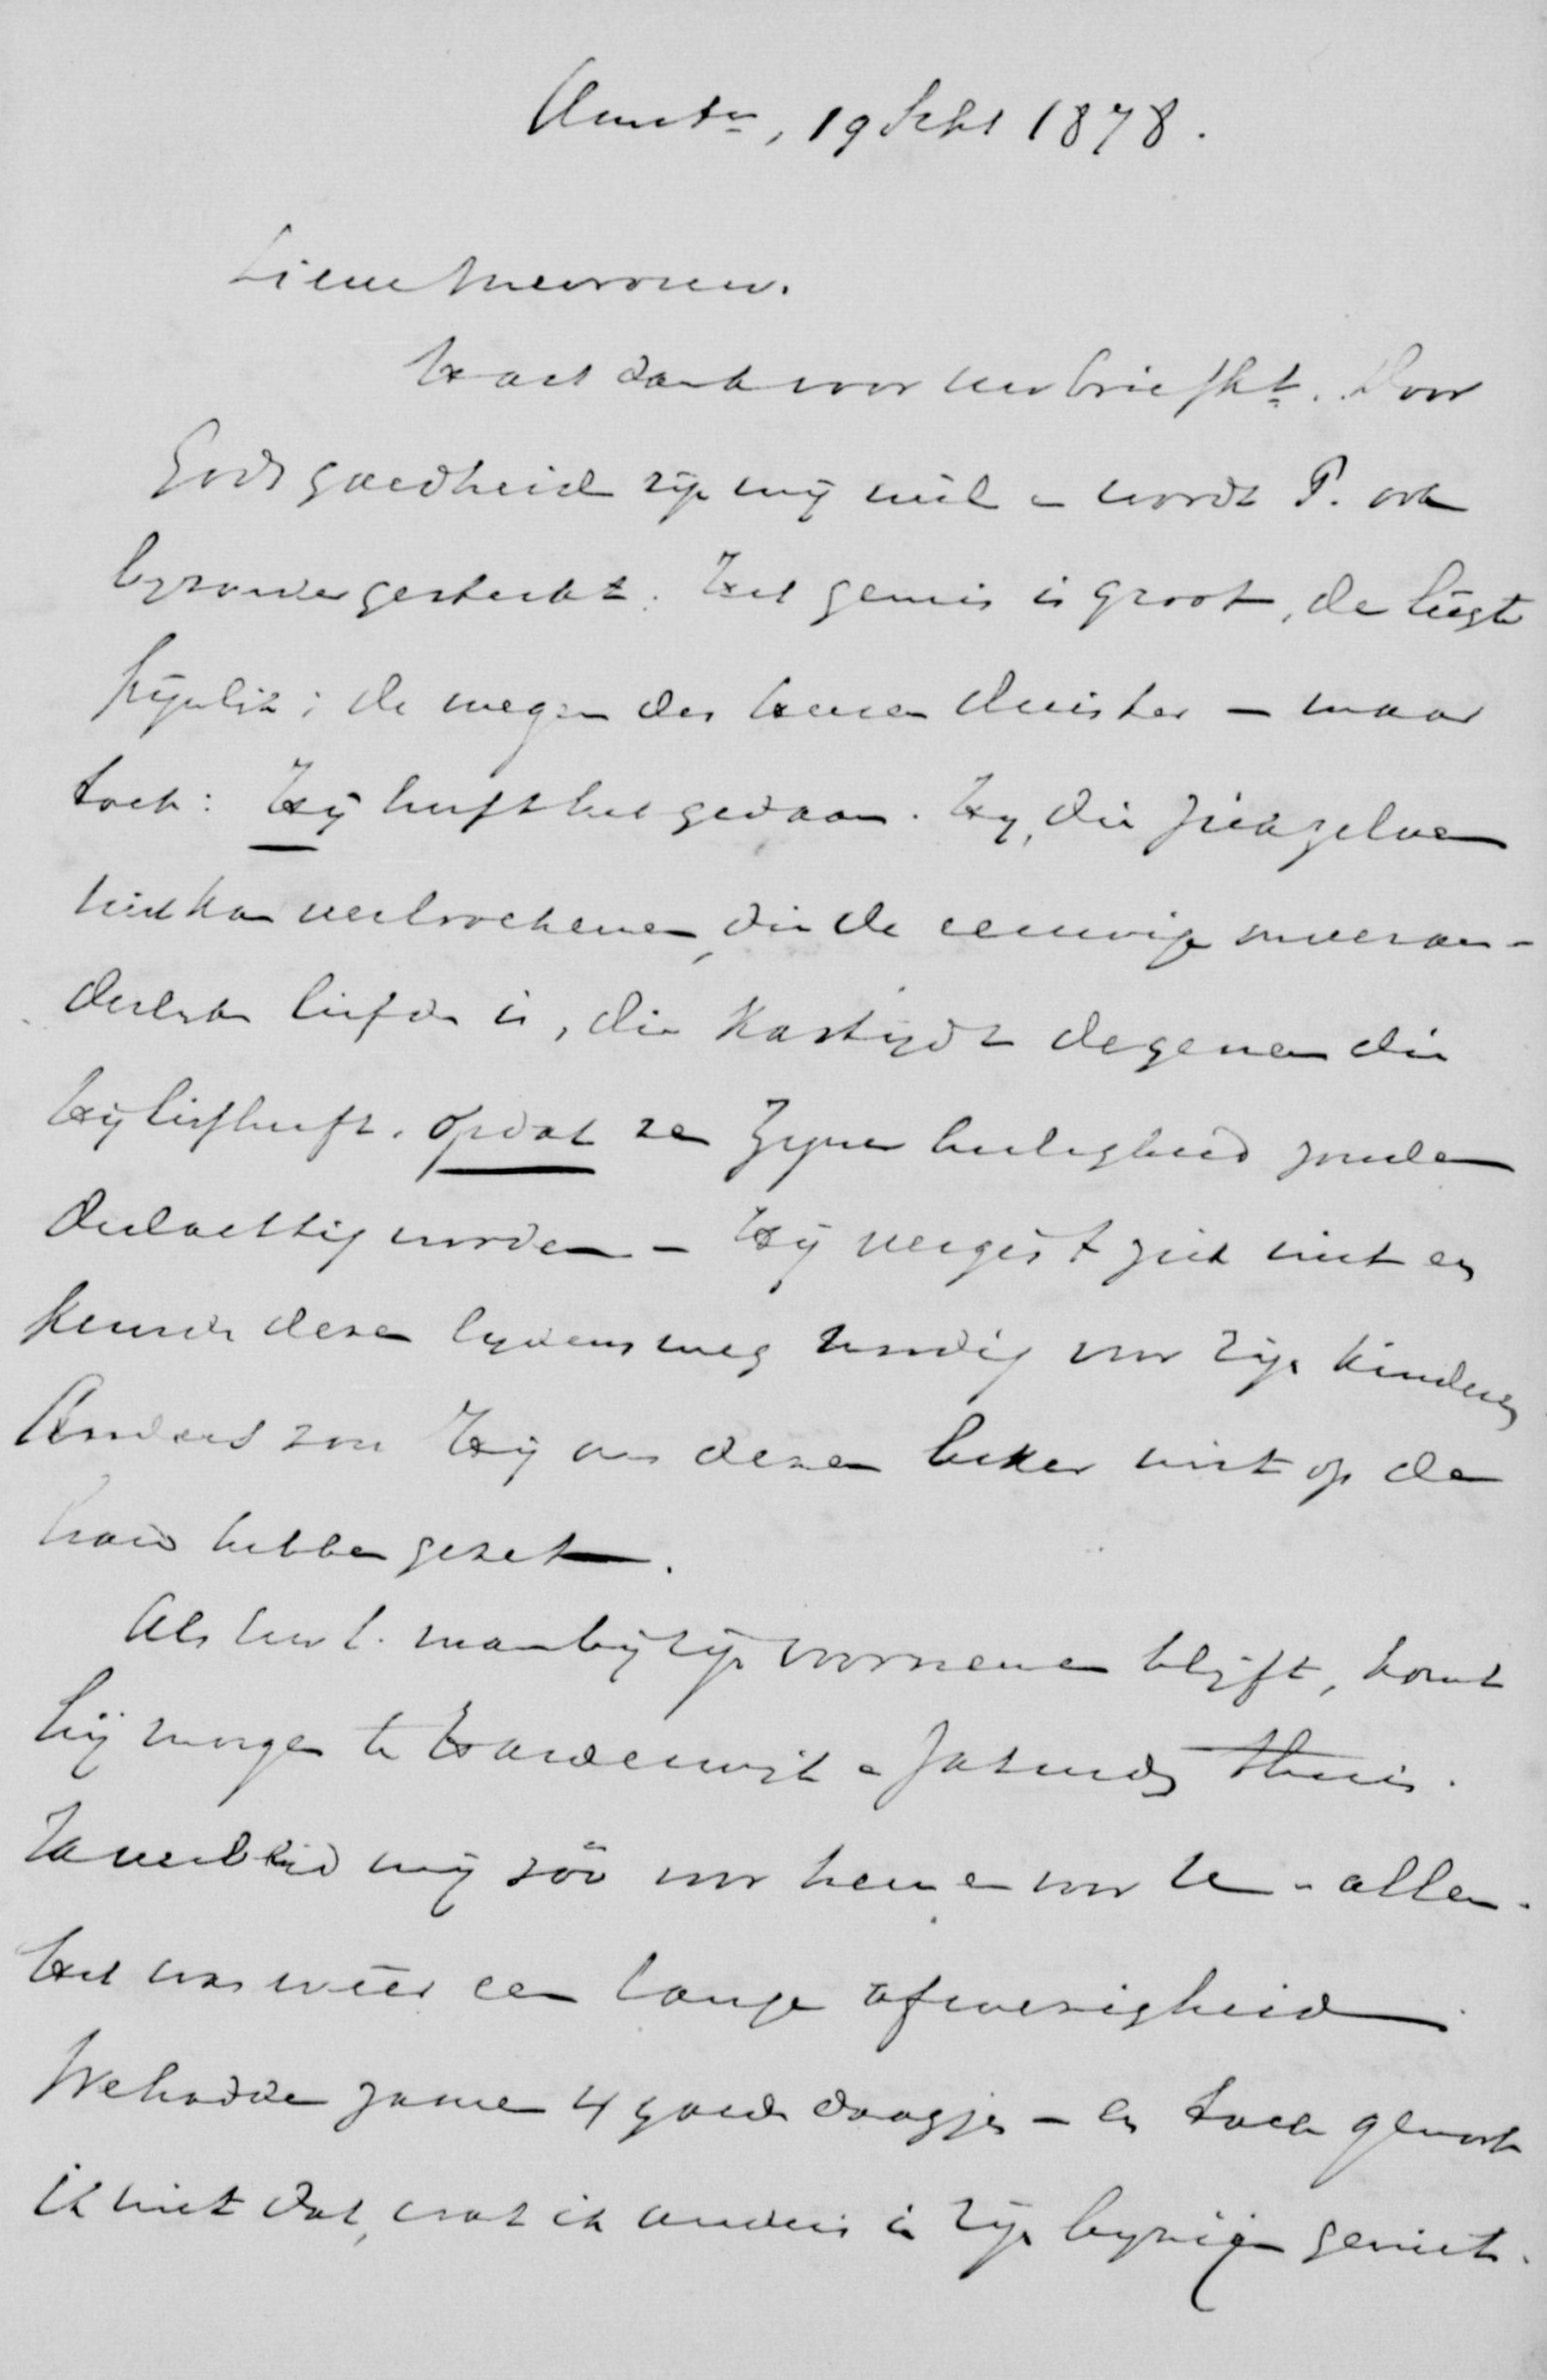 Amstm, 19 Sept 1878.
Lieve Mevrouw.
Hart. dank voor uw briefkt. Door
Gods goedheid zijn wij wèl en wordt P. ook
byzonder gesterkt. Het gemis is groot, de leegte
pijnlijk; de wegen des Heeren duister – maar
toch: Hij heeft het gedaan. Hy, die zich zelven
niet kan verloochenen, die de eeuwige onveran-
derlyke liefde is, die kastydt degenen die
Hij liefheeft, opdat ze Zyner heiligheid zouden
deelachtig worden – Hij vergist zich niet en
keurde dezen lydensweg noodig voor zijn kinderen
Anders zou Hij ons dezen beker niet op de
hand hebben gezet.
Als uw l. man bij zijn voornemen blijft, komt
hij morgen te Harderwijk en Saturdag thuis.
Ik verblijd mij zóó voor hem en voor U en allen.
Het was wéér een lange afwezigheid.
We hadden zamen 4 goede daagjes – en toch genoot
ik niet dat, wat ik anders in zijn byzijn geniet.